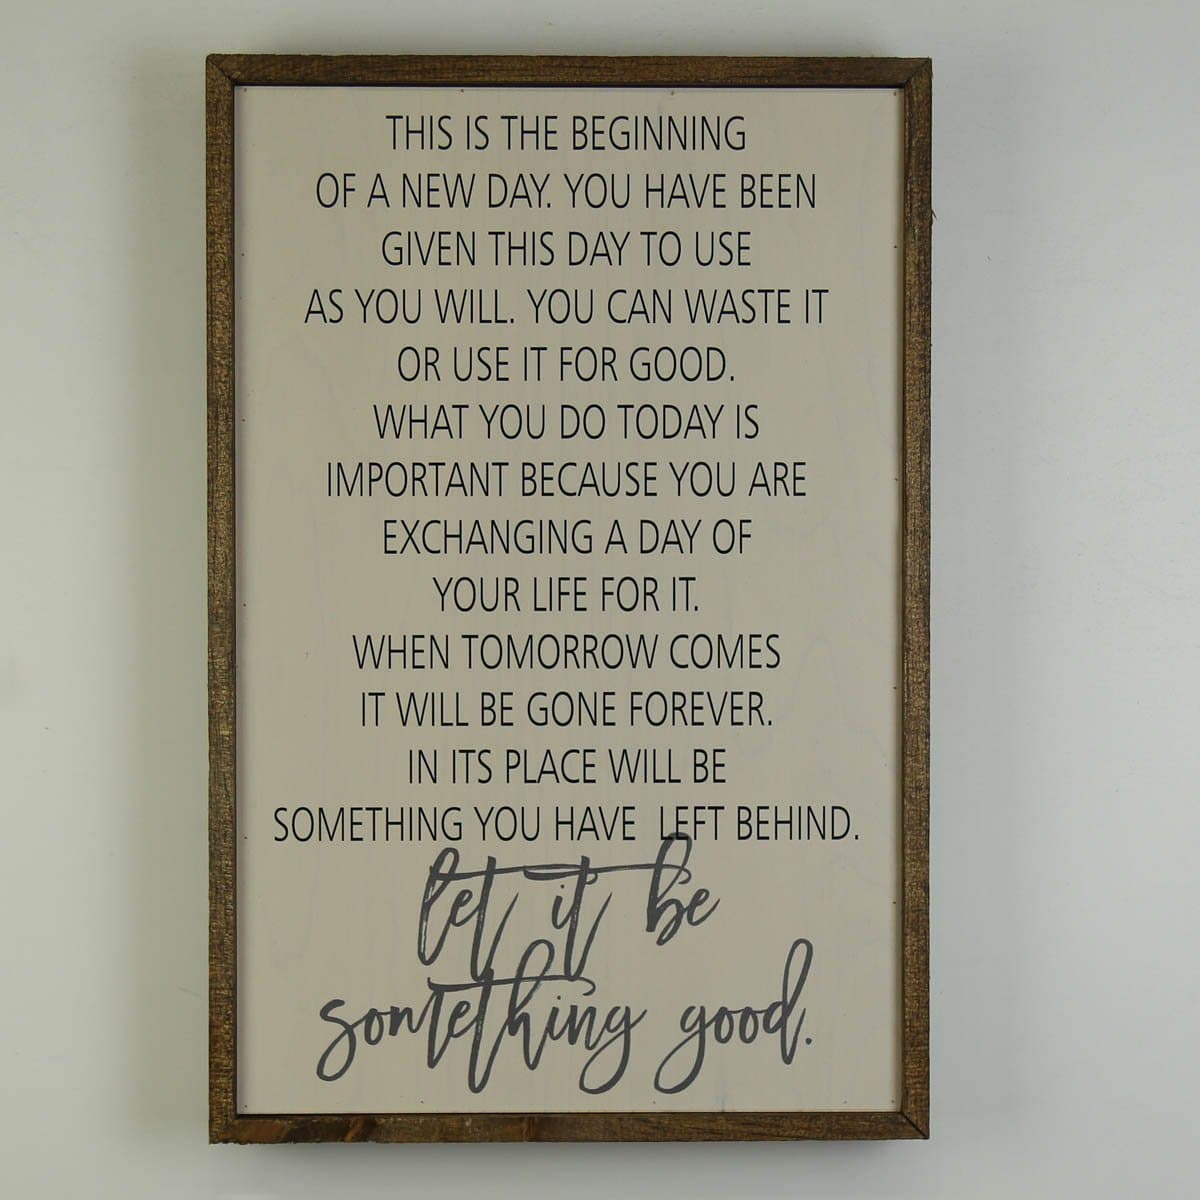 THIS IS THE BEGINNING
OF A NEW DAY. YOU HAVE BEEN
GIVEN THIS DAY TO USE
AS YOU WILL. YOU CAN WASTE IT
OR USE IT FOR GOOD.
WHAT YOU DO TODAY IS
IMPORTANT BECAUSE YOU ARE
EXCHANGING A DAY OF
YOUR LIFE FOR IT.
WHEN TOMORROW COMES
IT WILL BE GONE FOREVER.
IN ITS PLACE WILL BE
SOMETHING YOU HAVE LEFT BEHIND.
let it be
something good.